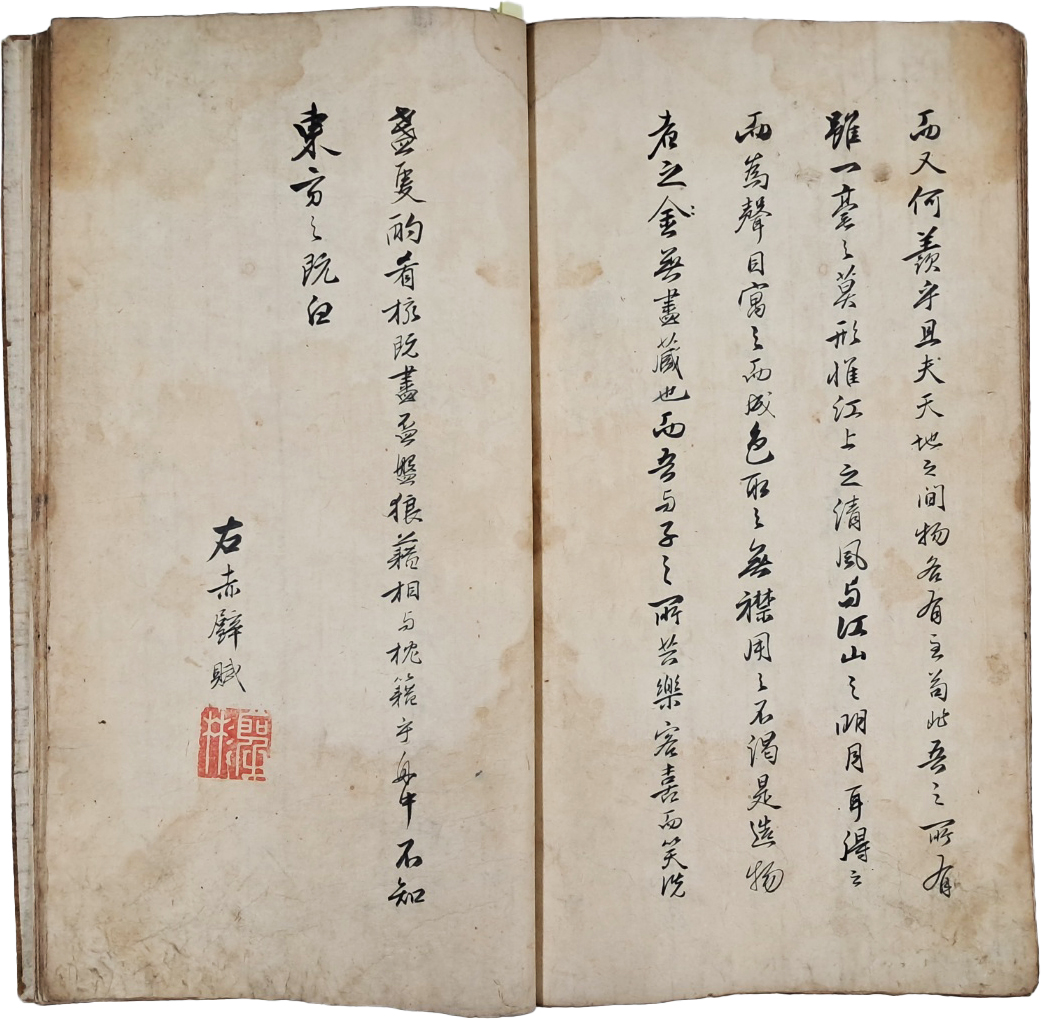 而又何羨乎且夫天地之間物各有主苟非吾之所有
雖一毫之莫形惟江上之清風与江山之明月耳得之
而為聲目寓之而成色取之無襟用之不渴是造物
者之金無盡藏也而吾与子之所共樂客喜而笑洗
盞更酌肴核既盡盃盤狼藉相与枕籍乎舟中不知
東方之既白
右赤壁賦